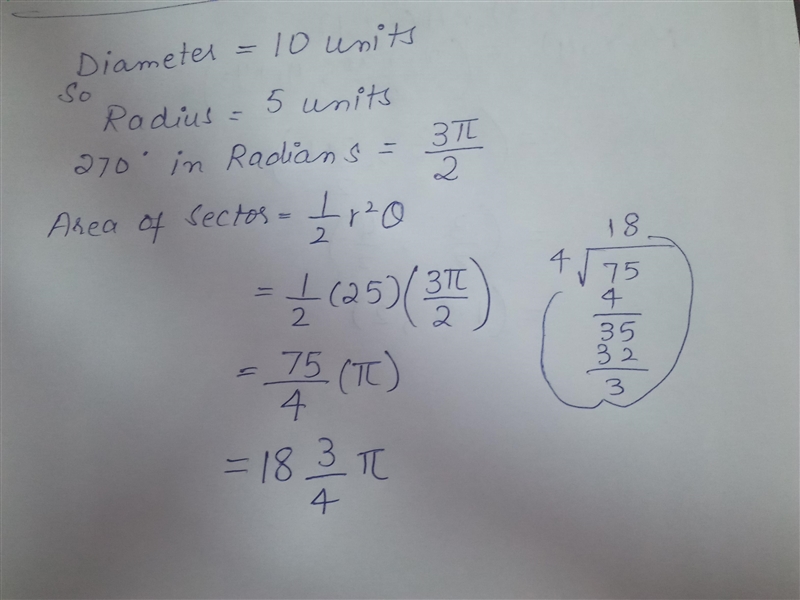 Diameter = 10 units
So
Radius = 5 units
270° in Radians = 3π/2
Area of Sector = 1/2 r²θ
= 1/2 (25) (3π/2)
= 75/4 (π)
= 18 3/4 π
18
4√75
4
35
32
3